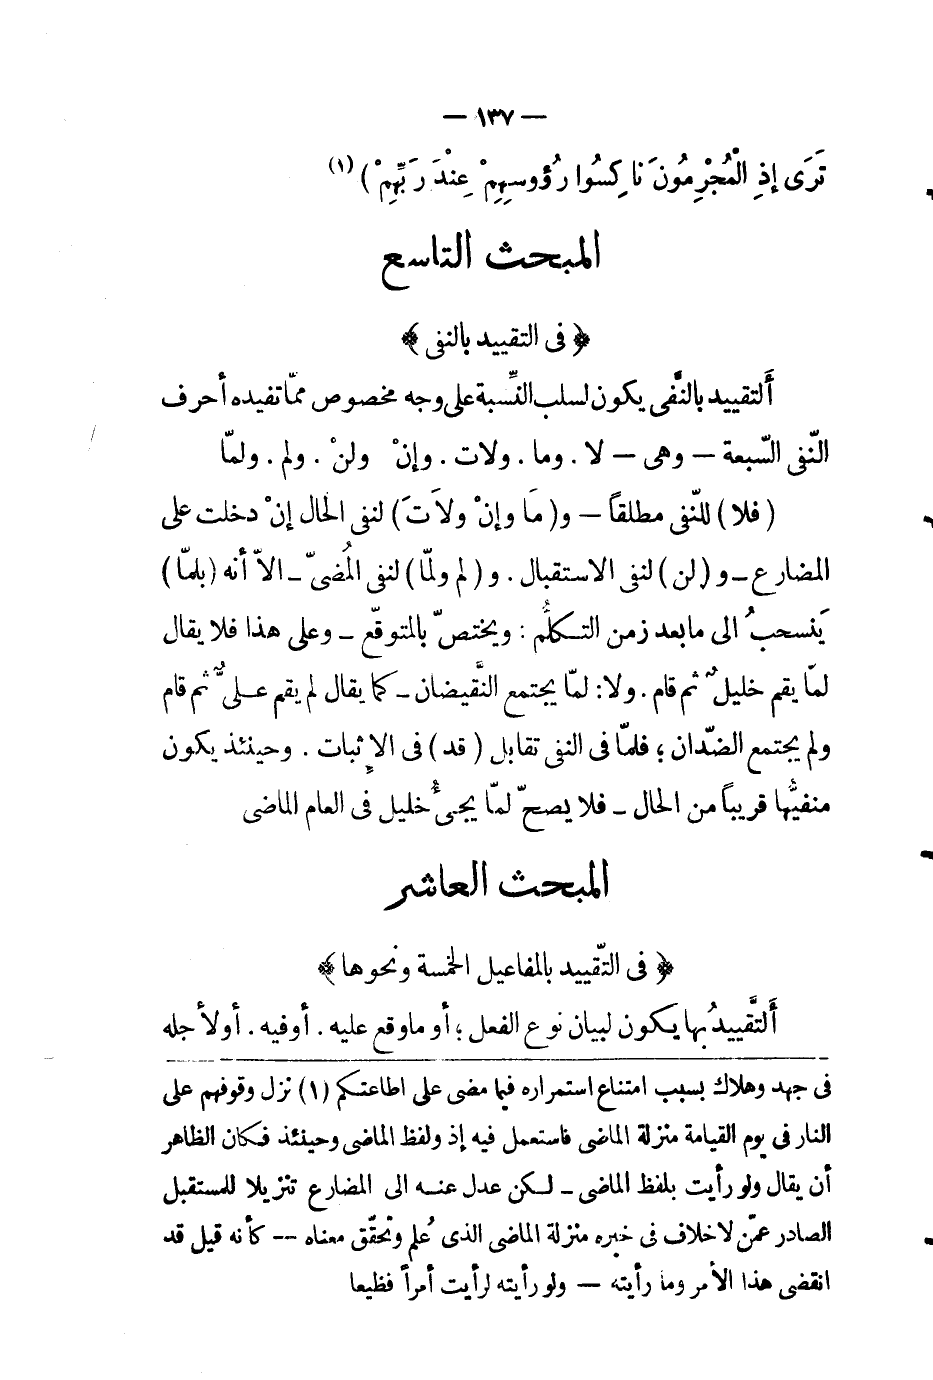 — ١٣٧ —
تَرَى إذِ الْمُجْرِمُونَ نَاكِسُوا رُؤُوسِهِمْ عِنْدَ رَبِّهِمْ ) (١)
المبحث التاسع
﴿ فى التقييد بالنفى ﴾
أَلتقييد بالنَّفى يكون لسلب النِّسبة على وجه مخصوص ممّا تفيده أحرف
النّفى السّبعة — وهى — لا . وما . ولات . وإنْ ولنْ . ولم . ولمّا
( فلا ) للنّفى مطلقاً — و( مَا وإنْ ولاَتَ ) لنفى الحال إنْ دخلت على
المضارع ـ و ( لن ) لنفى الاستقبال . و ( لم ولمّا ) لنفى المُضىّ ـ الاّ أنه ( بلمّا )
يَنسحبُ الى ما بعد زمن التكلُّم : ويختصّ بالمتوقّع ـ وعلى هذا فلا يقال
لمّا يقم خليلٌ ثم قام . ولا : لمّا يجتمع النَّقيضان ـ كما يقال لم يقم علىٌّ ثم قام
ولم يجتمع الضّدان ؛ فلمّا فى النفى تقابل ( قد ) فى الإثبات . وحينئذ يكون
منفيُّها قريباً من الحال ـ فلا يصحّ لمّا يجىءُ خليل فى العام الماضى
المبحث العاشر
﴿ فى التّقييد بالمفاعيل الخمسة ونحوها ﴾
أَلتَّقييدُ بها يكون لبيان نوع الفعل ؛ أو ماوقع عليه . أوفيه . أولأجله
فى جهد وهلاك بسبب امتناع استمراره فيما مضى على اطاعتكم (١) نزل وقوفهم على
النار فى يوم القيامة منزلة الماضى فاستعمل فيه إذ ولفظ الماضى وحينئذ فكان الظاهر
أن يقال ولو رأيت بلفظ الماضى ـ لكن عدل عنه الى المضارع تنزيلا للمستقبل
الصادر عمّن لاخلاف فى خبره منزلة الماضى الذى عُلم وتحقّق معناه -- كأنه قيل قد
انقضى هذا الأمر وما رأيته — ولو رأيته لرأيت أمراً فظيعا